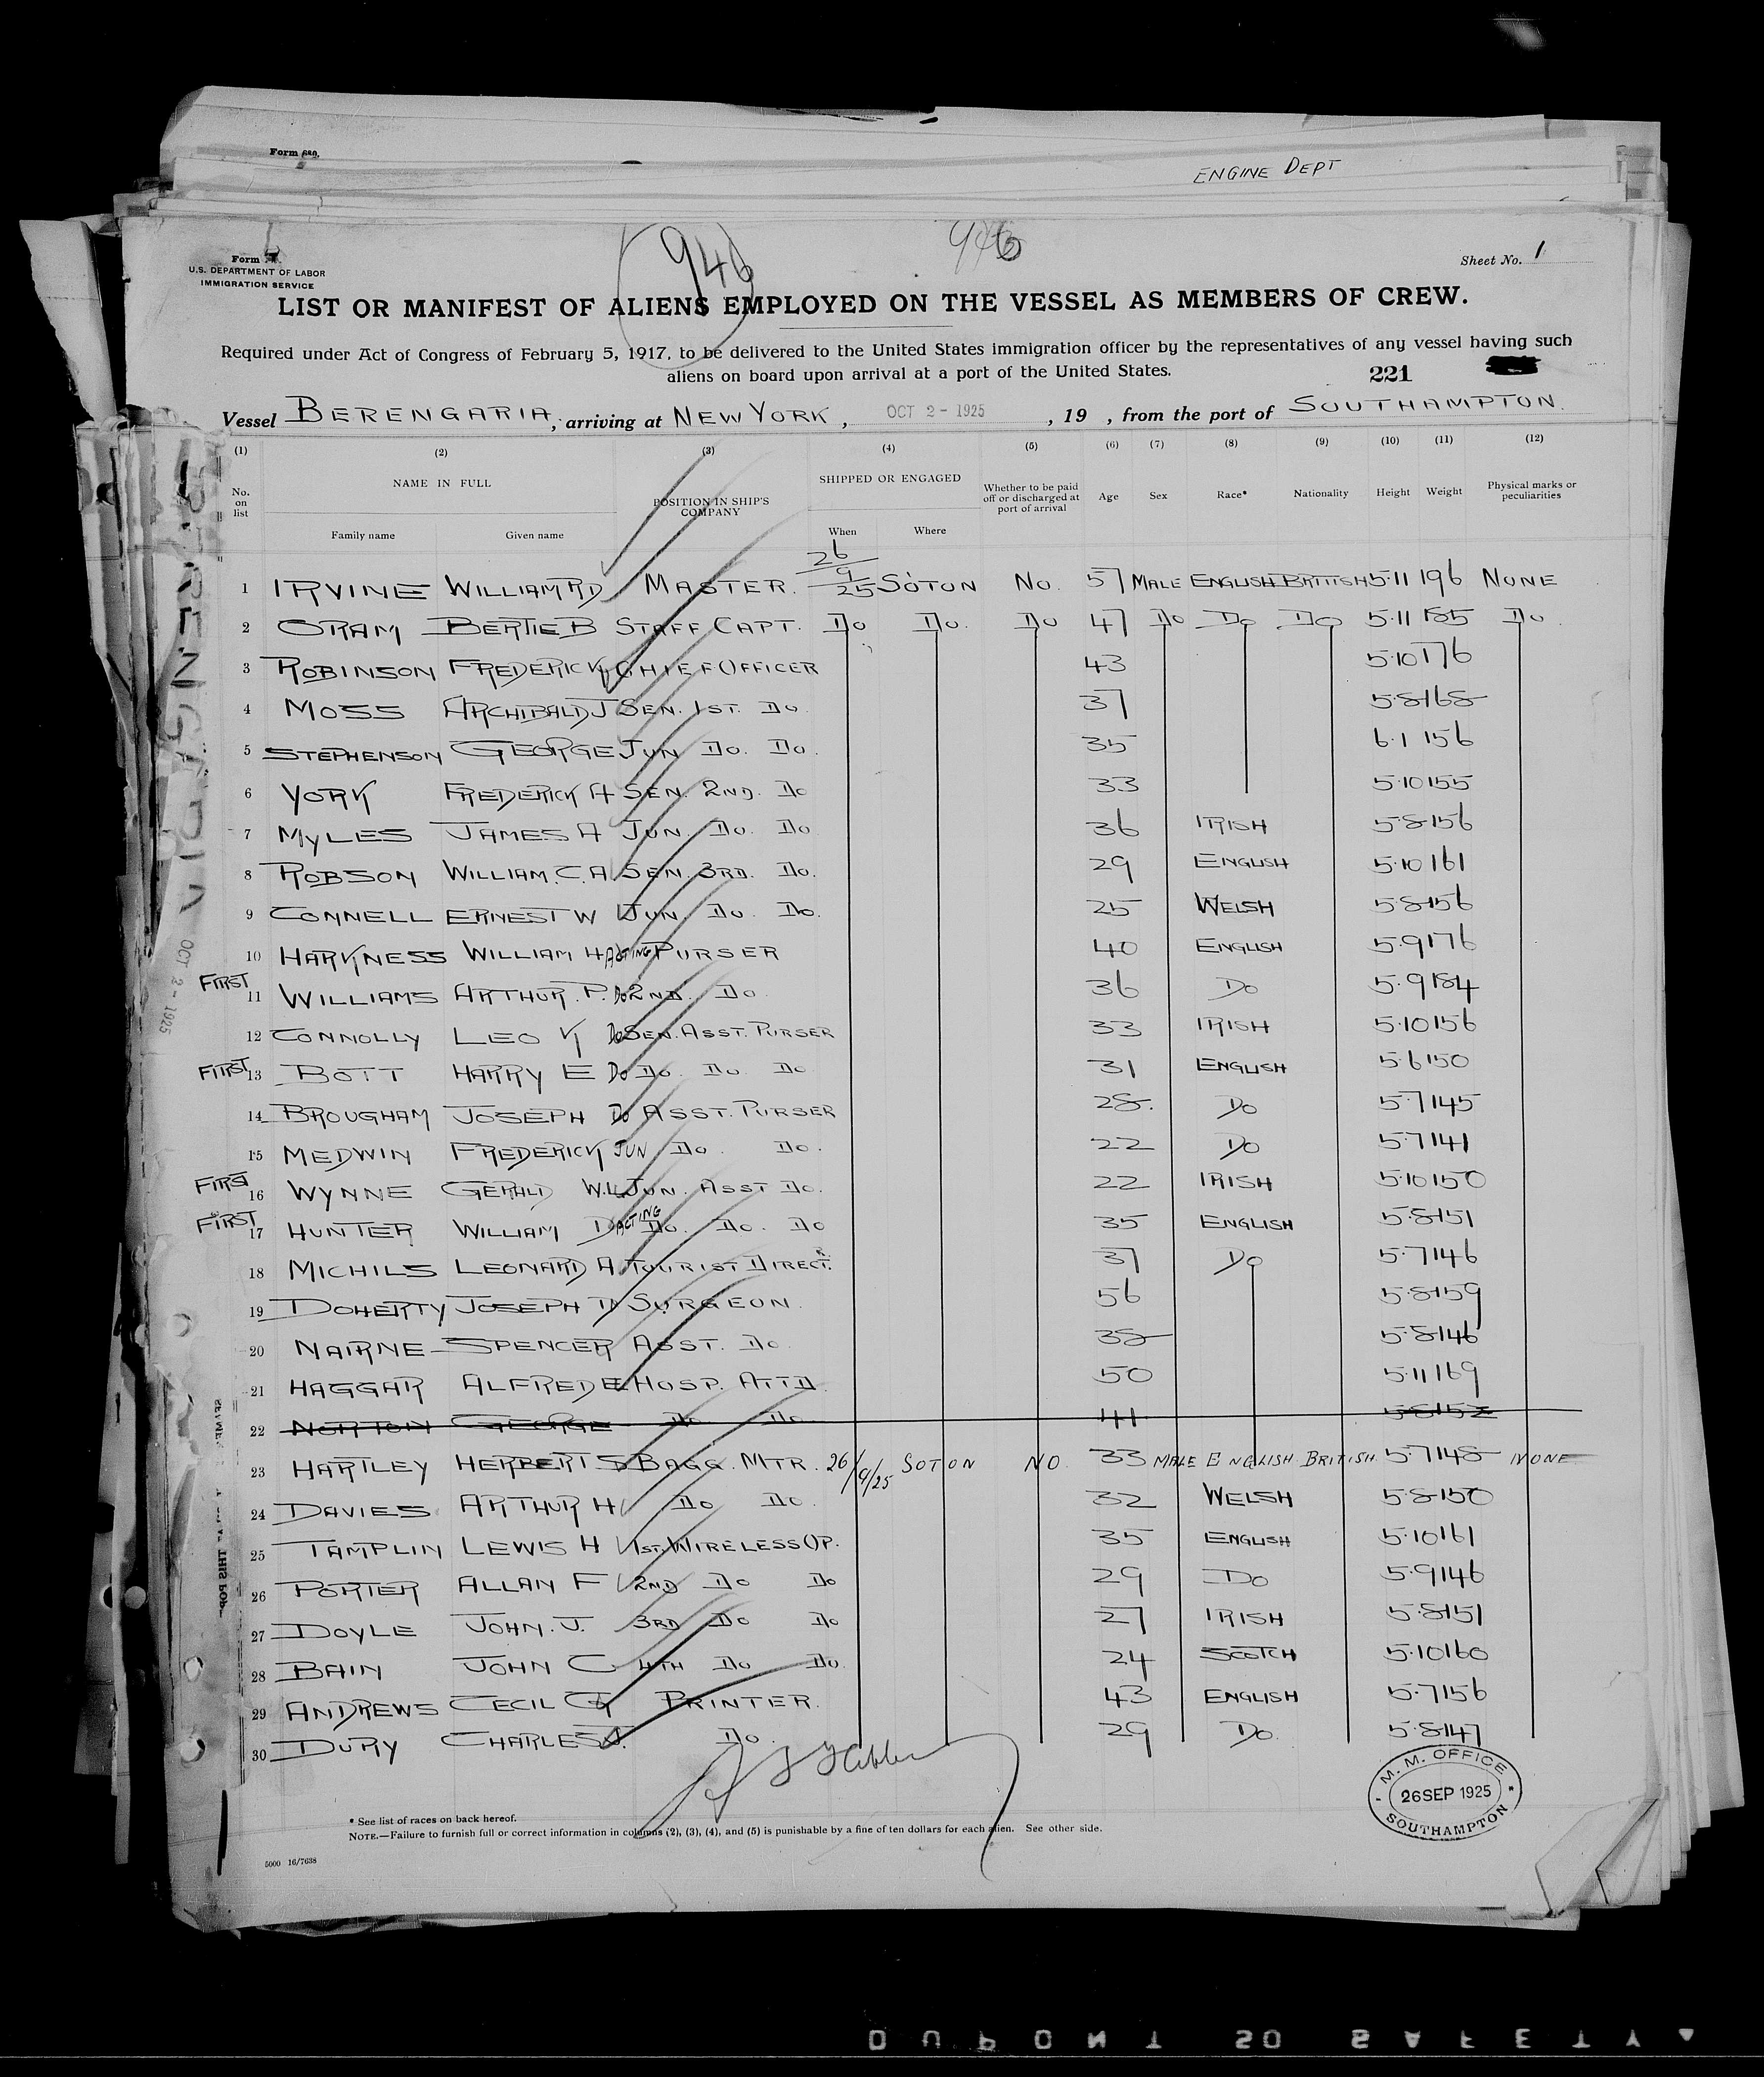 Form 680.
ENGINE DEPT
946
946
Form
U.S. DEPARTMENT OF LABOR
IMMIGRATION SERVICE
Sheet No. 1
LIST OR MANIFEST OF ALIENS EMPLOYED ON THE VESSEL AS MEMBERS OF CREW.
Required under Act of Congress of February 5, 1917, to be delivered to the United States immigration officer by the representatives of any vessel having such
aliens on board upon arrival at a port of the United States.
221
Vessel BERENGARIA, arriving at NEW YORK, OCT 2 - 1925, 19 , from the port of SOUTHAMPTON.
(1) (2) (3) (4) (5) (6) (7) (8) (9) (10) (11) (12)
No. on list NAME IN FULL POSITION IN SHIP'S COMPANY SHIPPED OR ENGAGED Whether to be paid off or discharged at port of arrival Age Sex Race* Nationality Height Weight Physical marks or peculiarities
Family name Given name When Where
1 IRVINE WILLIAM R D MASTER. 26/9/25 SOTON NO. 57 MALE ENGLISH BRITISH 5·11 196 NONE
2 ORAM BERTIE B STAFF CAPT. DO DO. DO 47 DO DO DO 5·11 185 DO.
3 ROBINSON FREDERICK G CHIEF OFFICER 43 5·10 176
4 MOSS ARCHIBALD J SEN. 1ST. DO. 37 5·8 168
5 STEPHENSON GEORGE JUN DO. DO. 35 6·1 156
6 YORK FREDERICK A SEN. 2ND. DO 33 5·10 155
7 MYLES JAMES A JUN. DO. DO 36 IRISH 5·8 156
8 ROBSON WILLIAM. C. A. SEN. 3RD. DO. 29 ENGLISH 5·10 161
9 CONNELL ERNEST W JUN. DO. DO. 25 WELSH 5·8 156
10 HARKNESS WILLIAM H ACTING PURSER 40 ENGLISH 5·9 176
FIRST 11 WILLIAMS ARTHUR. P. DO 2ND. DO 36 DO 5·9 184
12 CONNOLLY LEO K DO SEN. ASST. PURSER 33 IRISH 5·10 156
FIRST 13 BOTT HARRY E DO DO. DO. DO 31 ENGLISH 5·6 150
14 BROUGHAM JOSEPH DO ASST. PURSER 28. DO 5·7 145
15 MEDWIN FREDERICK JUN DO. DO. 22 DO 5·7 141
FIRST 16 WYNNE GERALD W.L JUN. ASST DO. 22 IRISH 5·10 150
FIRST 17 HUNTER WILLIAM D ACTING DO. DO. DO 35 ENGLISH 5·8 151
18 MICHILS LEONARD A TOURIST DIRECTR. 37 DO 5·7 146
19 DOHERTY JOSEPH D SURGEON. 56 5·8 159
20 NAIRNE SPENCER ASST. DO. 38 5·8 146
21 HAGGAR ALFRED E HOSP. ATTD. 50 5·11 169
22 NORTON GEORGE DO DO 41 5·8 152
23 HARTLEY HERBERT S BAGG. MTR. 26/9/25 SOTON NO 33 MALE ENGLISH BRITISH 5·7 148 NONE
24 DAVIES ARTHUR H DO DO. 32 WELSH 5·8 150
25 TAMPLIN LEWIS H 1ST. WIRELESS OP. 35 ENGLISH 5·10 161
26 PORTER ALLAN F 2ND DO DO 29 DO 5·9 146
27 DOYLE JOHN. J. 3RD DO DO 27 IRISH 5·8 151
28 BAIN JOHN C 4TH DO DO. 24 SCOTCH 5·10 160
29 ANDREWS CECIL G PRINTER. 43 ENGLISH 5·7 156
30 DURY CHARLES J. DO. 29 DO. 5·8 147
M. M. OFFICE
26 SEP 1925
SOUTHAMPTON
* See list of races on back hereof.
NOTE.—Failure to furnish full or correct information in columns (2), (3), (4), and (5) is punishable by a fine of ten dollars for each alien. See other side.
5000 16/7638
BERENGARIA
OCT 2 - 1925
DUPONT SO SAFETY